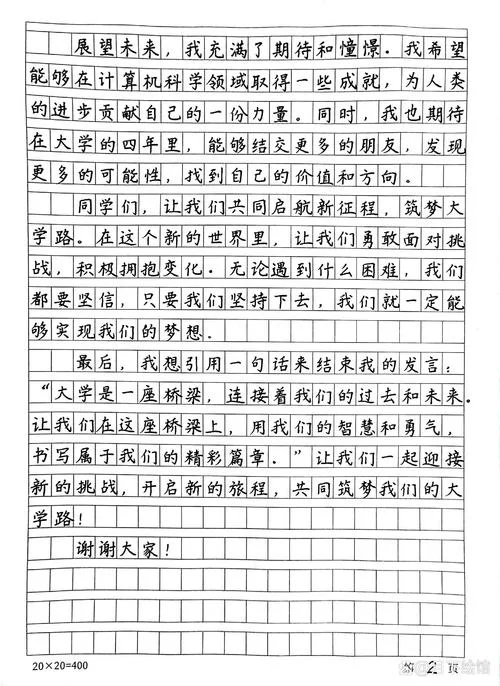 展望未来，我充满了期待和憧憬。我希望
能够在计算机科学领域取得一些成就，为人类
的进步贡献自己的一份力量。同时，我也期待
在大学的四年里，能够结交更多的朋友，发现
更多的可能性，找到自己的价值和方向。
同学们，让我们共同启航新征程，筑梦大
学路。在这个新的世界里，让我们勇敢面对挑
战，积极拥抱变化。无论遇到什么困难，我们
都要坚信，只要我们坚持下去，我们就一定能
够实现我们的梦想。
最后，我想引用一句话来结束我的发言：
“大学是一座桥梁，连接着我们的过去和未来。
让我们在这座桥梁上，用我们的智慧和勇气，
书写属于我们的精彩篇章。”让我们一起迎接
新的挑战，开启新的旅程，共同筑梦我们的大
学路！
谢谢大家！
20×20=400
第 2 页